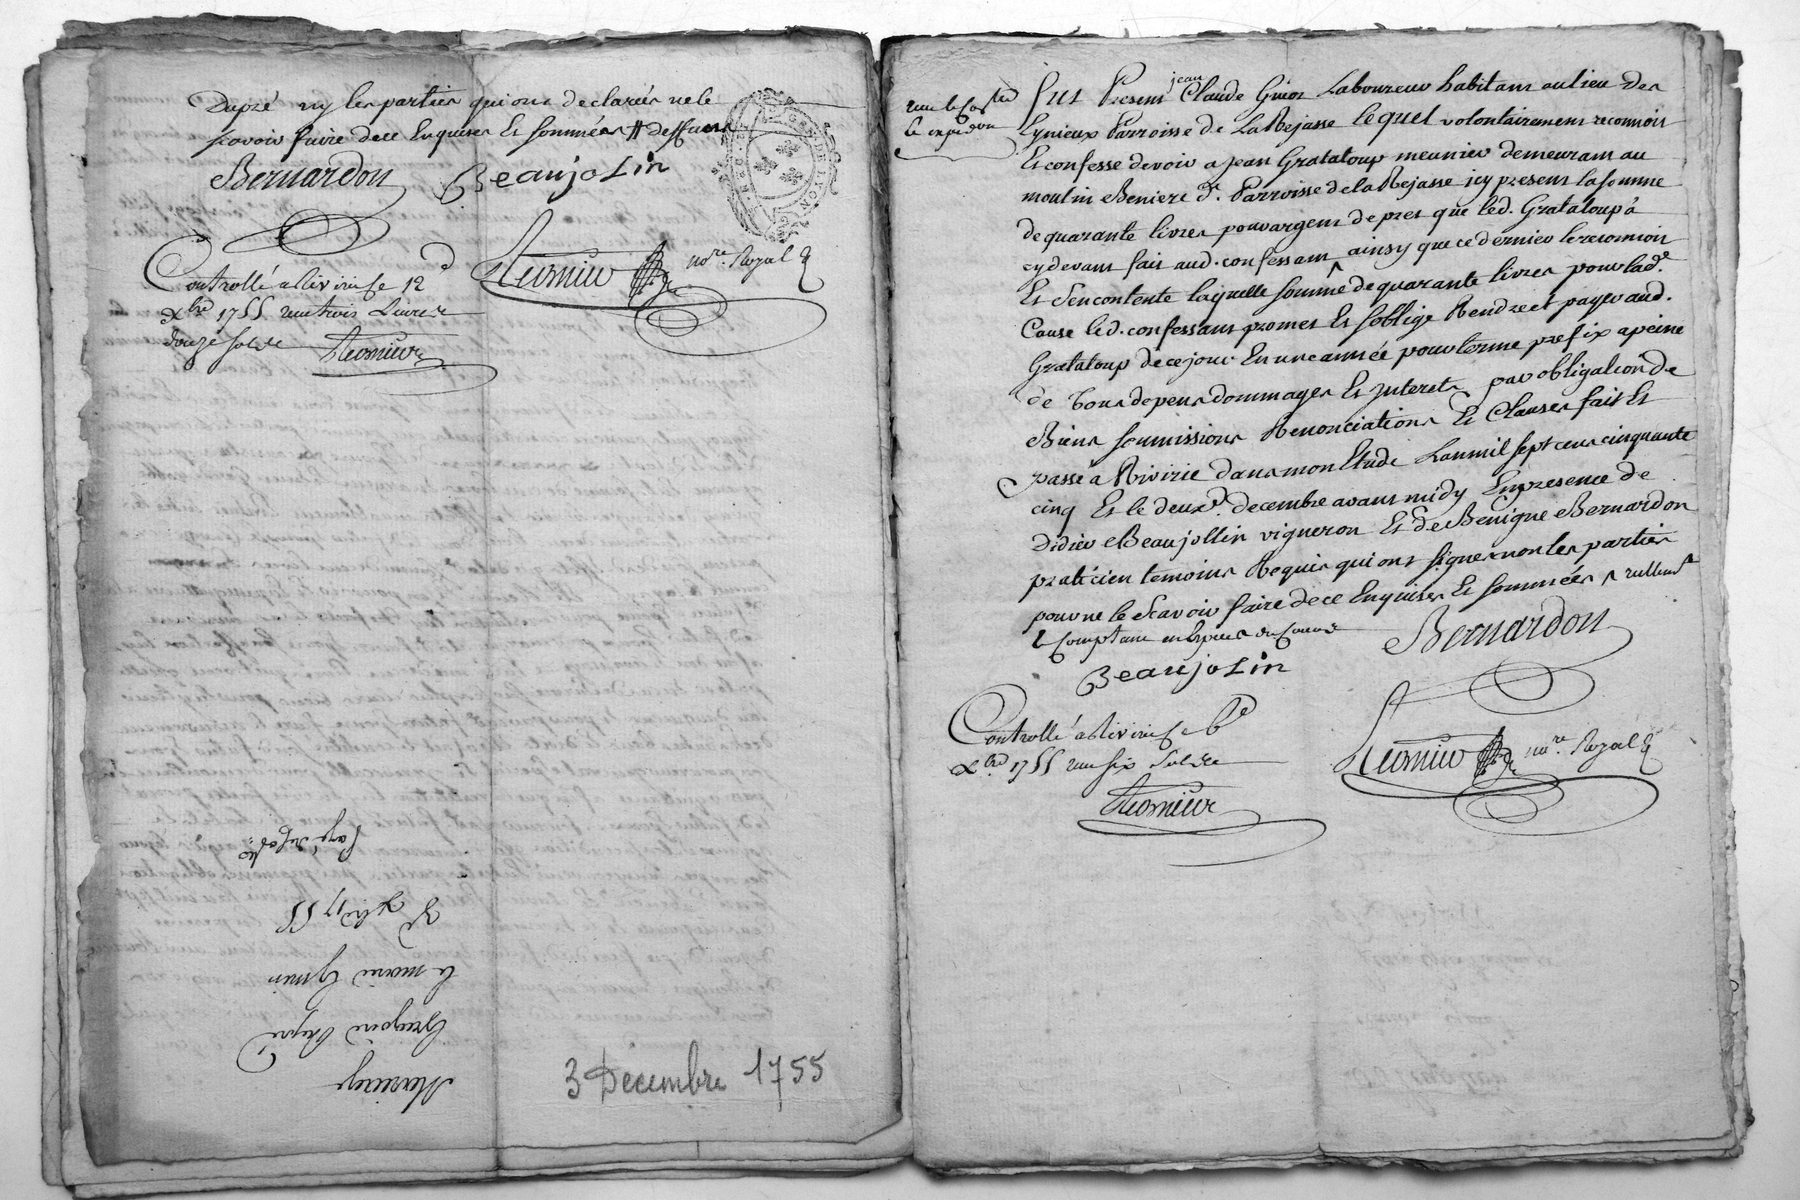 Dupré ny les parties qui ont declarées ne le
scavoir faire dece Enquises Et sommées
Bernardon Beaujolin
GEN DE LYON
nore. Royal
Controllé a Riviri le 12
xbre 1755 recu trois Livres
douze sols
3 Decembre 1755
payé
xbre 1755
Mariage
jean
Fut Present Claude Guiot Laboureur habitant au lieu des
Eynieux Parroisse de LaRejasse lequel volontairement reconnoit
Et confesse devoir a jean Grataloup meunier demeurant au
moulin Beniere dt. Parroisse de la Rejasse icy present la somme
de quarante livres pour argent de pret que led. Grataloup à
cy devant fait aud. confessant ainsy que ce dernier le reconnoit
Et s'en contente laquelle somme de quarante livres pour lade.
Cause led. confessant promet Et s'oblige Rendre et payer aud.
Grataloup de ce jour En une année pour terme prefix a peine
de tous depens dommages Et Interets par obligation de
Biens soumissions Renonciations Et Clauses fait Et
passé a Rivirie dans mon Etude Lan mil sept cens cinquante
cinq Et le deuxe. decembre avant midy En presence de
Didier Beaujollin vigneron Et de Benigne Bernardon
praticien temoins Requis qui ont signés non les parties
pour ne le scavoir faire de ce Enquises Et sommées
Comptant en Espèces
Bernardon
Beaujolin
Controllé a Riviri le 6e
xbre 1755 recu six sols
nore. Royal